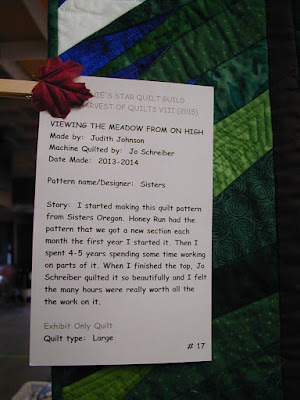 IE'S STAR QUILT GUILD
ARVEST OF QUILTS VIII (2015)
VIEWING THE MEADOW FROM ON HIGH
Made by: Judith Johnson
Machine Quilted by: Jo Schreiber
Date Made: 2013-2014
Pattern name/Designer: Sisters
Story: I started making this quilt pattern
from Sisters Oregon. Honey Run had the
pattern that we got a new section each
month the first year I started it. Then I
spent 4-5 years spending some time working
on parts of it. When I finished the top, Jo
Schreiber quilted it so beautifully and I felt
the many hours were really worth all the
the work on it.
Exhibit Only Quilt
Quilt type: Large
# 17